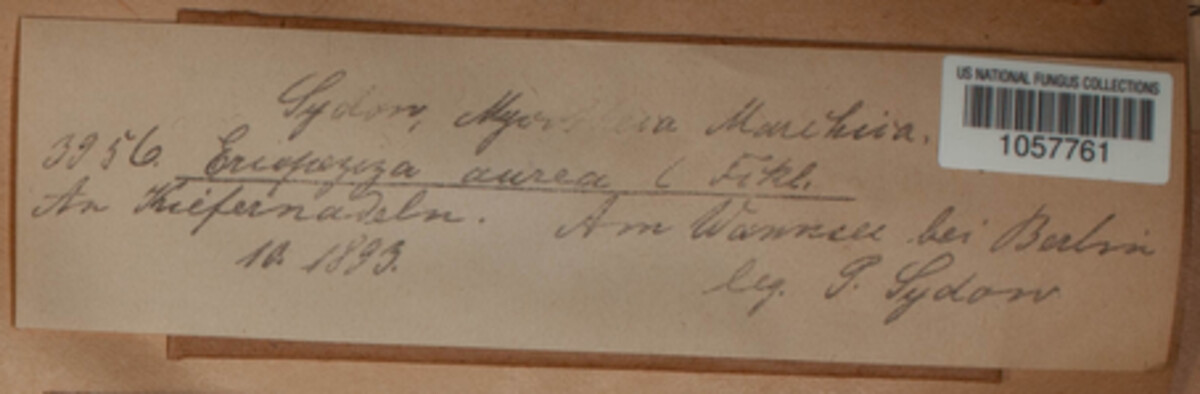 Sydow, Mycotheca Marchica.
3956. Eriopeziza aurea ( Fckl.
An Kiefernadeln. Am Wannsee bei Berlin
10. 1893. leg. P. Sydow
US NATIONAL FUNGUS COLLECTIONS
1057761